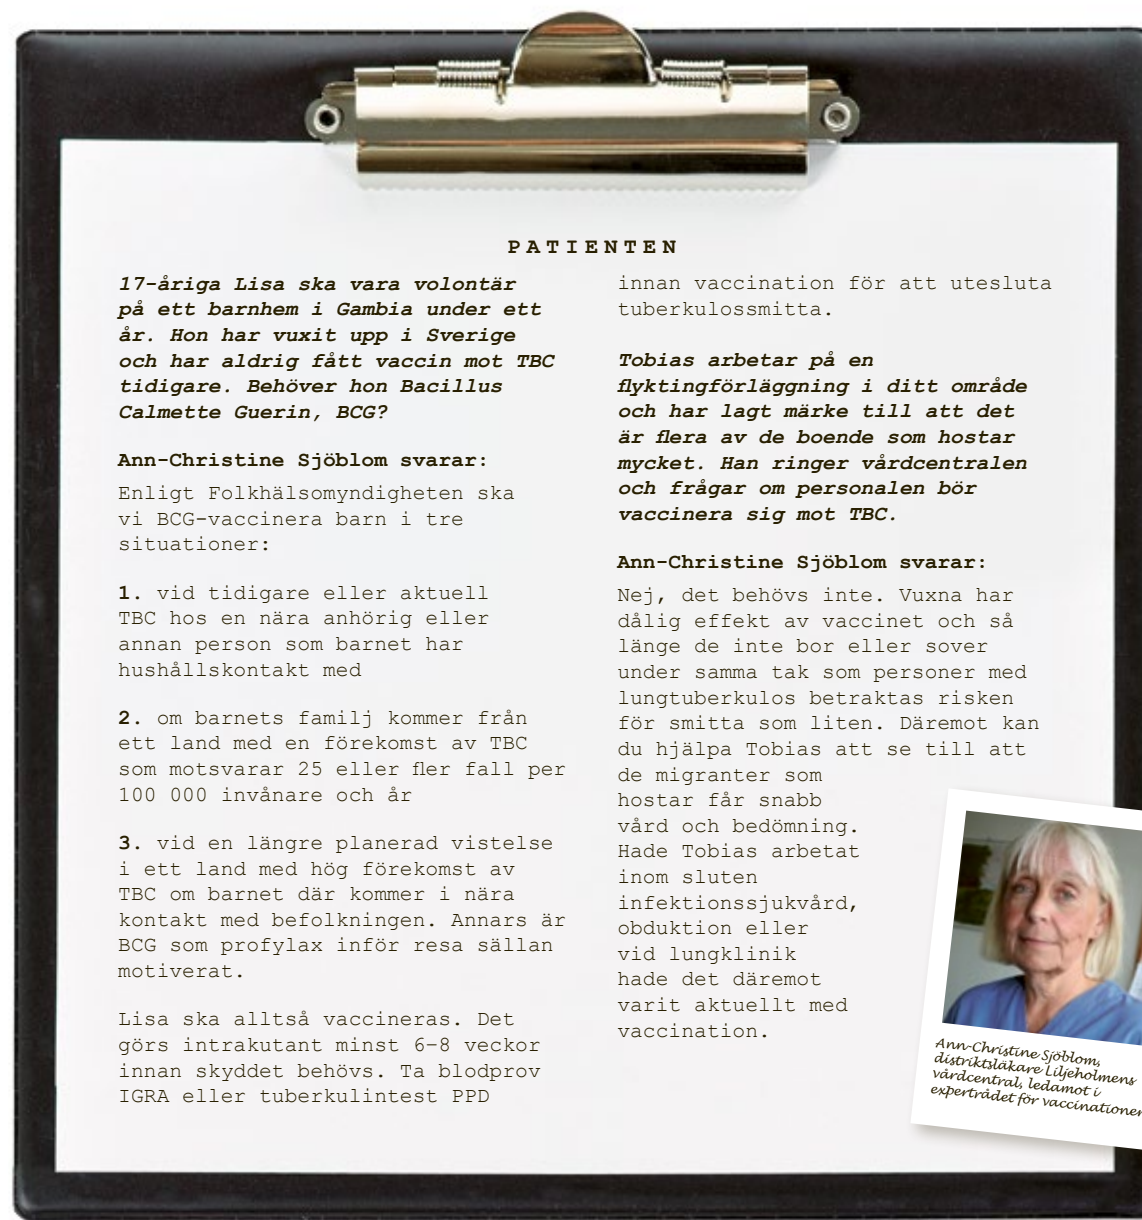 PATIENTEN
17-åriga Lisa ska vara volontär
på ett barnhem i Gambia under ett
år. Hon har vuxit upp i Sverige
och har aldrig fått vaccin mot TBC
tidigare. Behöver hon Bacillus
Calmette Guerin, BCG?
Ann-Christine Sjöblom svarar:
Enligt Folkhälsomyndigheten ska
vi BCG-vaccinera barn i tre
situationer:
1. vid tidigare eller aktuell
TBC hos en nära anhörig eller
annan person som barnet har
hushållskontakt med
2. om barnets familj kommer från
ett land med en förekomst av TBC
som motsvarar 25 eller fler fall per
100 000 invånare och år
3. vid en längre planerad vistelse
i ett land med hög förekomst av
TBC om barnet där kommer i nära
kontakt med befolkningen. Annars är
BCG som profylax inför resa sällan
motiverat.
Lisa ska alltså vaccineras. Det
görs intrakutant minst 6–8 veckor
innan skyddet behövs. Ta blodprov
IGRA eller tuberkulintest PPD
innan vaccination för att utesluta
tuberkulossmitta.
Tobias arbetar på en
flyktingförläggning i ditt område
och har lagt märke till att det
är flera av de boende som hostar
mycket. Han ringer vårdcentralen
och frågar om personalen bör
vaccinera sig mot TBC.
Ann-Christine Sjöblom svarar:
Nej, det behövs inte. Vuxna har
dålig effekt av vaccinet och så
länge de inte bor eller sover
under samma tak som personer med
lungtuberkulos betraktas risken
för smitta som liten. Däremot kan
du hjälpa Tobias att se till att
de migranter som
hostar får snabb
vård och bedömning.
Hade Tobias arbetat
inom sluten
infektionssjukvård,
obduktion eller
vid lungklinik
hade det däremot
varit aktuellt med
vaccination.
Ann-Christine Sjöblom,
distriktsläkare Liljeholmens
vårdcentral, ledamot i
expertrådet för vaccinationer